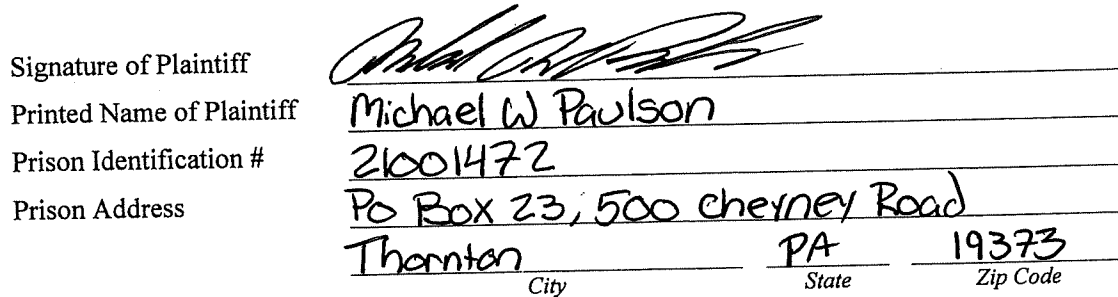 Signature of Plaintiff
Printed Name of Plaintiff Michael W Paulson
Prison Identification # 21001472
Prison Address Po Box 23, 500 Cheyney Road
Thornton PA 19373
City State Zip Code